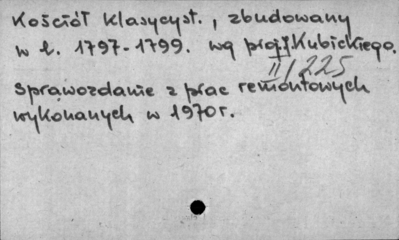 Kościół klasycyst., zbudowany
w l. 1797-1799. wg proj. J Kubickiego.
II/225
Sprawozdanie z prac remontowych
wykonanych w 1970r.